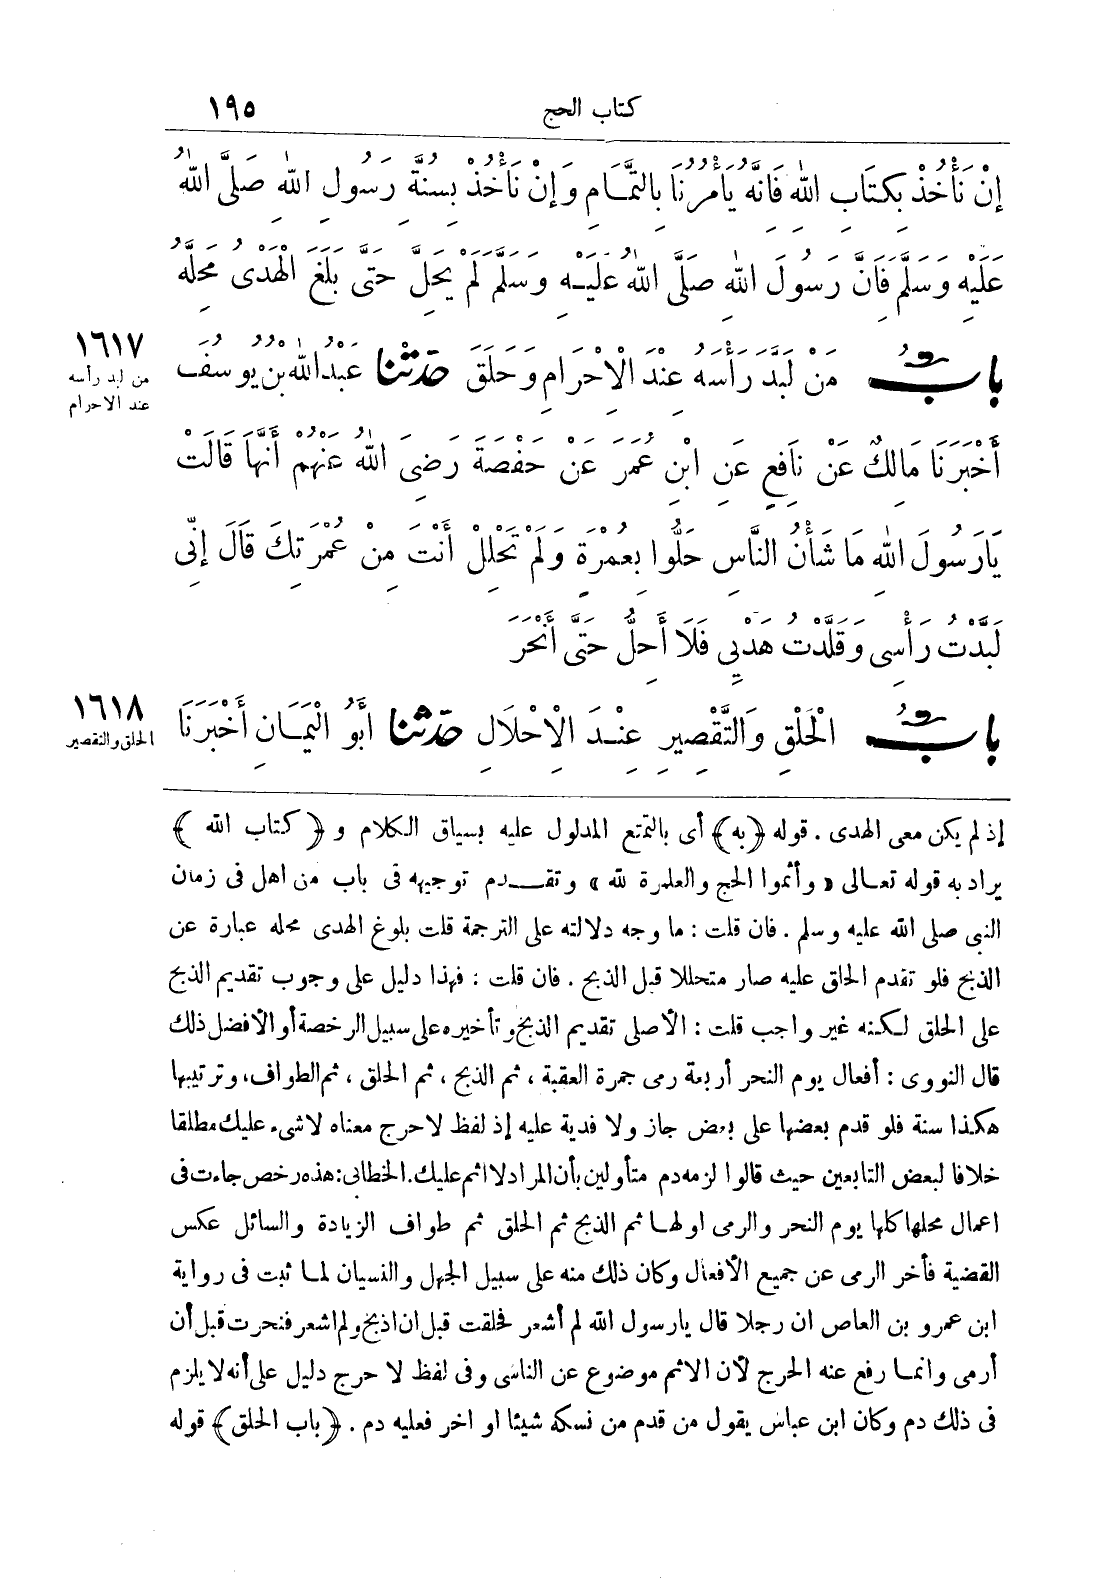 كتاب الحج ١٩٥
إِنْ نَأْخُذْ بِكِتَابِ اللهِ فَإِنَّهُ يَأْمُرُنَا بِالتَّمَامِ وَإِنْ نَأْخُذْ بِسُنَّةِ رَسُولِ اللهِ صَلَّى اللهُ
عَلَيْهِ وَسَلَّمَ فَإِنَّ رَسُولَ اللهِ صَلَّى اللهُ عَلَيْهِ وَسَلَّمَ لَمْ يَحِلَّ حَتَّى بَلَغَ الْهَدْىُ مَحِلَّهُ
١٦١٧
من لبد رأسه
عند الاحرام
بابُ مَنْ لَبَّدَ رَأْسَهُ عِنْدَ الْاِحْرَامِ وَحَلَقَ حَدَّثنا عَبْدُ اللهِ بْنُ يُوسُفَ
أَخْبَرَنَا مَالِكٌ عَنْ نَافِعٍ عَنِ ابْنِ عُمَرَ عَنْ حَفْصَةَ رَضِىَ اللهُ عَنْهُمْ أَنَّهَا قَالَتْ
يَارَسُولَ اللهِ مَا شَأْنُ النَّاسِ حَلُّوا بِعُمْرَةٍ وَلَمْ تَحْلِلْ أَنْتَ مِنْ عُمْرَتِكَ قَالَ إِنِّى
لَبَّدْتُ رَأْسِى وَقَلَّدْتُ هَدْيِى فَلَا أَحِلُّ حَتَّى أَنْحَرَ
١٦١٨
الحلق والتقصير
بابُ الْحَلْقِ وَالتَّقْصِيرِ عِنْدَ الْاِحْلَالِ حَدَّثنا أَبُو الْيَمَانِ أَخْبَرَنَا
إذ لم يكن معى الهدى . قوله ﴿به﴾ أى بالتمتع المدلول عليه بسياق الكلام و ﴿كتاب الله﴾
يراد به قوله تعالى « وأتموا الحج والعلمرة لله » وتقدم توجيهه فى باب من اهل فى زمان
النبى صلى الله عليه وسلم . فان قلت : ما وجه دلالته على الترجمة قلت بلوغ الهدى محله عبارة عن
الذبح فلو تقدم الحلق عليه صار متحللا قبل الذبح . فان قلت : فهذا دليل على وجوب تقديم الذبح
على الحلق لكنه غير واجب قلت : الأصلى تقديم الذبح وتأخيره على سبيل الرخصة أو الأفضل ذلك
قال النووى : أفعال يوم النحر أربعة رمى جمرة العقبة ، ثم الذبح ، ثم الحلق ، ثم الطواف ، وترتيبها
هكذا سنة فلو قدم بعضها على بعض جاز ولا فدية عليه إذ لفظ لاحرج معناه لاشىء عليك مطلقا
خلافا لبعض التابعين حيث قالوا لزمه دم متأولين بأن المراد لا اثم عليك . الخطابى : هذه رخص جاءت فى
اعمال محلها كلها يوم النحر والرمى اولها ثم الذبح ثم الحلق ثم طواف الزيادة والسائل عكس
القضية فأخر الرمى عن جميع الأفعال وكان ذلك منه على سبيل الجهل والنسيان لما ثبت فى رواية
ابن عمرو بن العاص ان رجلا قال يارسول الله لم أشعر فحلقت قبل ان اذبح ولم اشعر فنحرت قبل أن
أرمى وانما رفع عنه الحرج لأن الاثم موضوع عن الناسى وفى لفظ لا حرج دليل على أنه لا يلزم
فى ذلك دم وكان ابن عباس يقول من قدم من نسكه شيئا او اخر فعليه دم . ﴿باب الحلق﴾ قوله